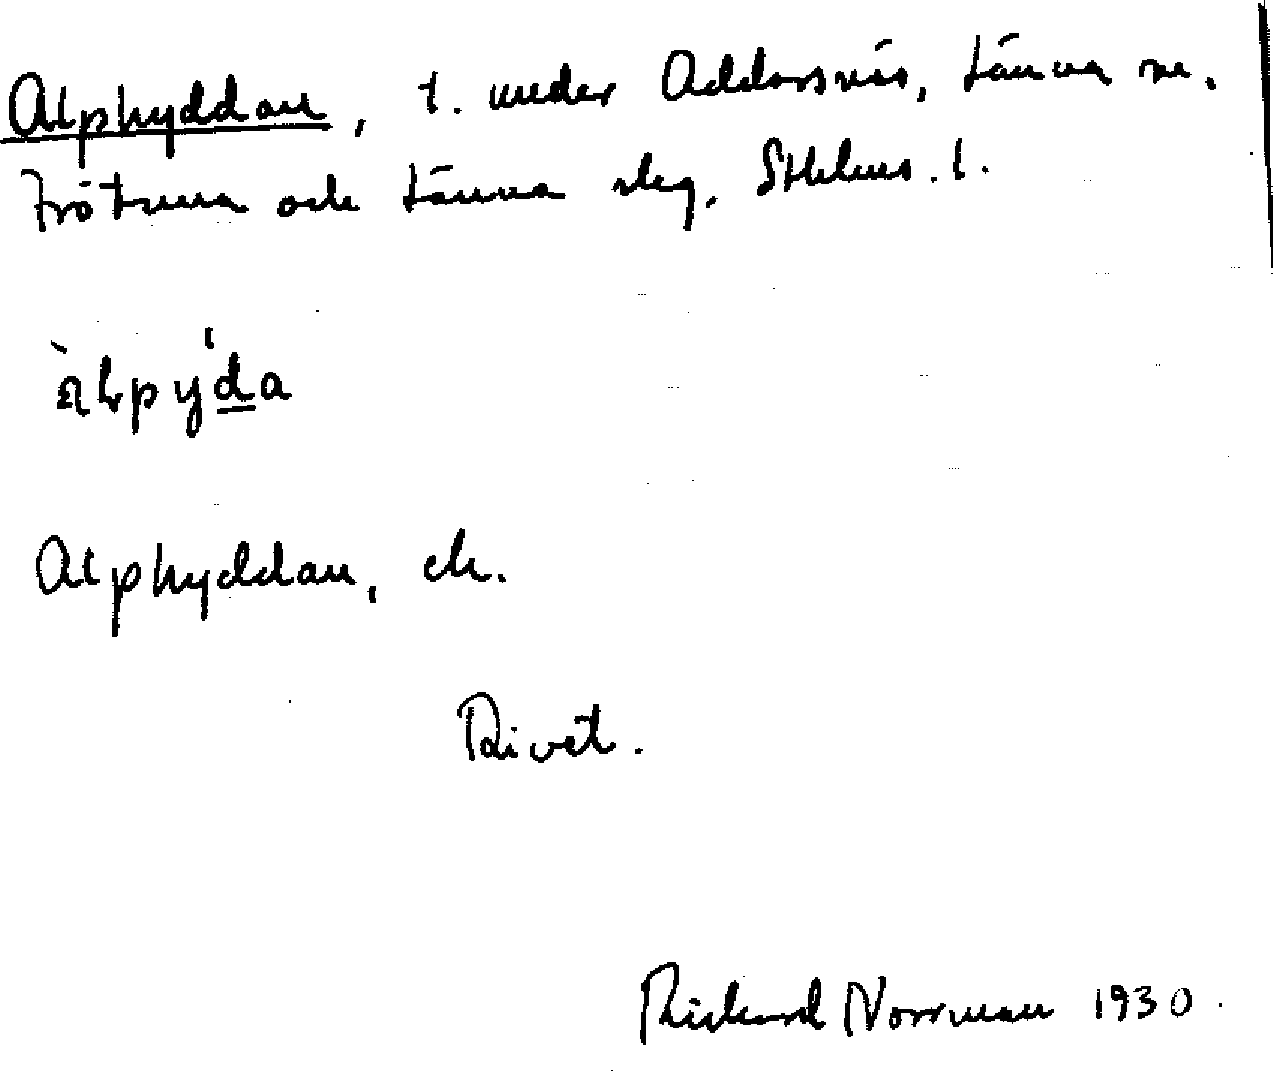 Alphyddan, t. under Addarsnäs, Länna sn.
Frötuna och Länna slg. Sthlms. l.
Alphyddan, ek.
Rivet.
Rickard Norrman 1930.